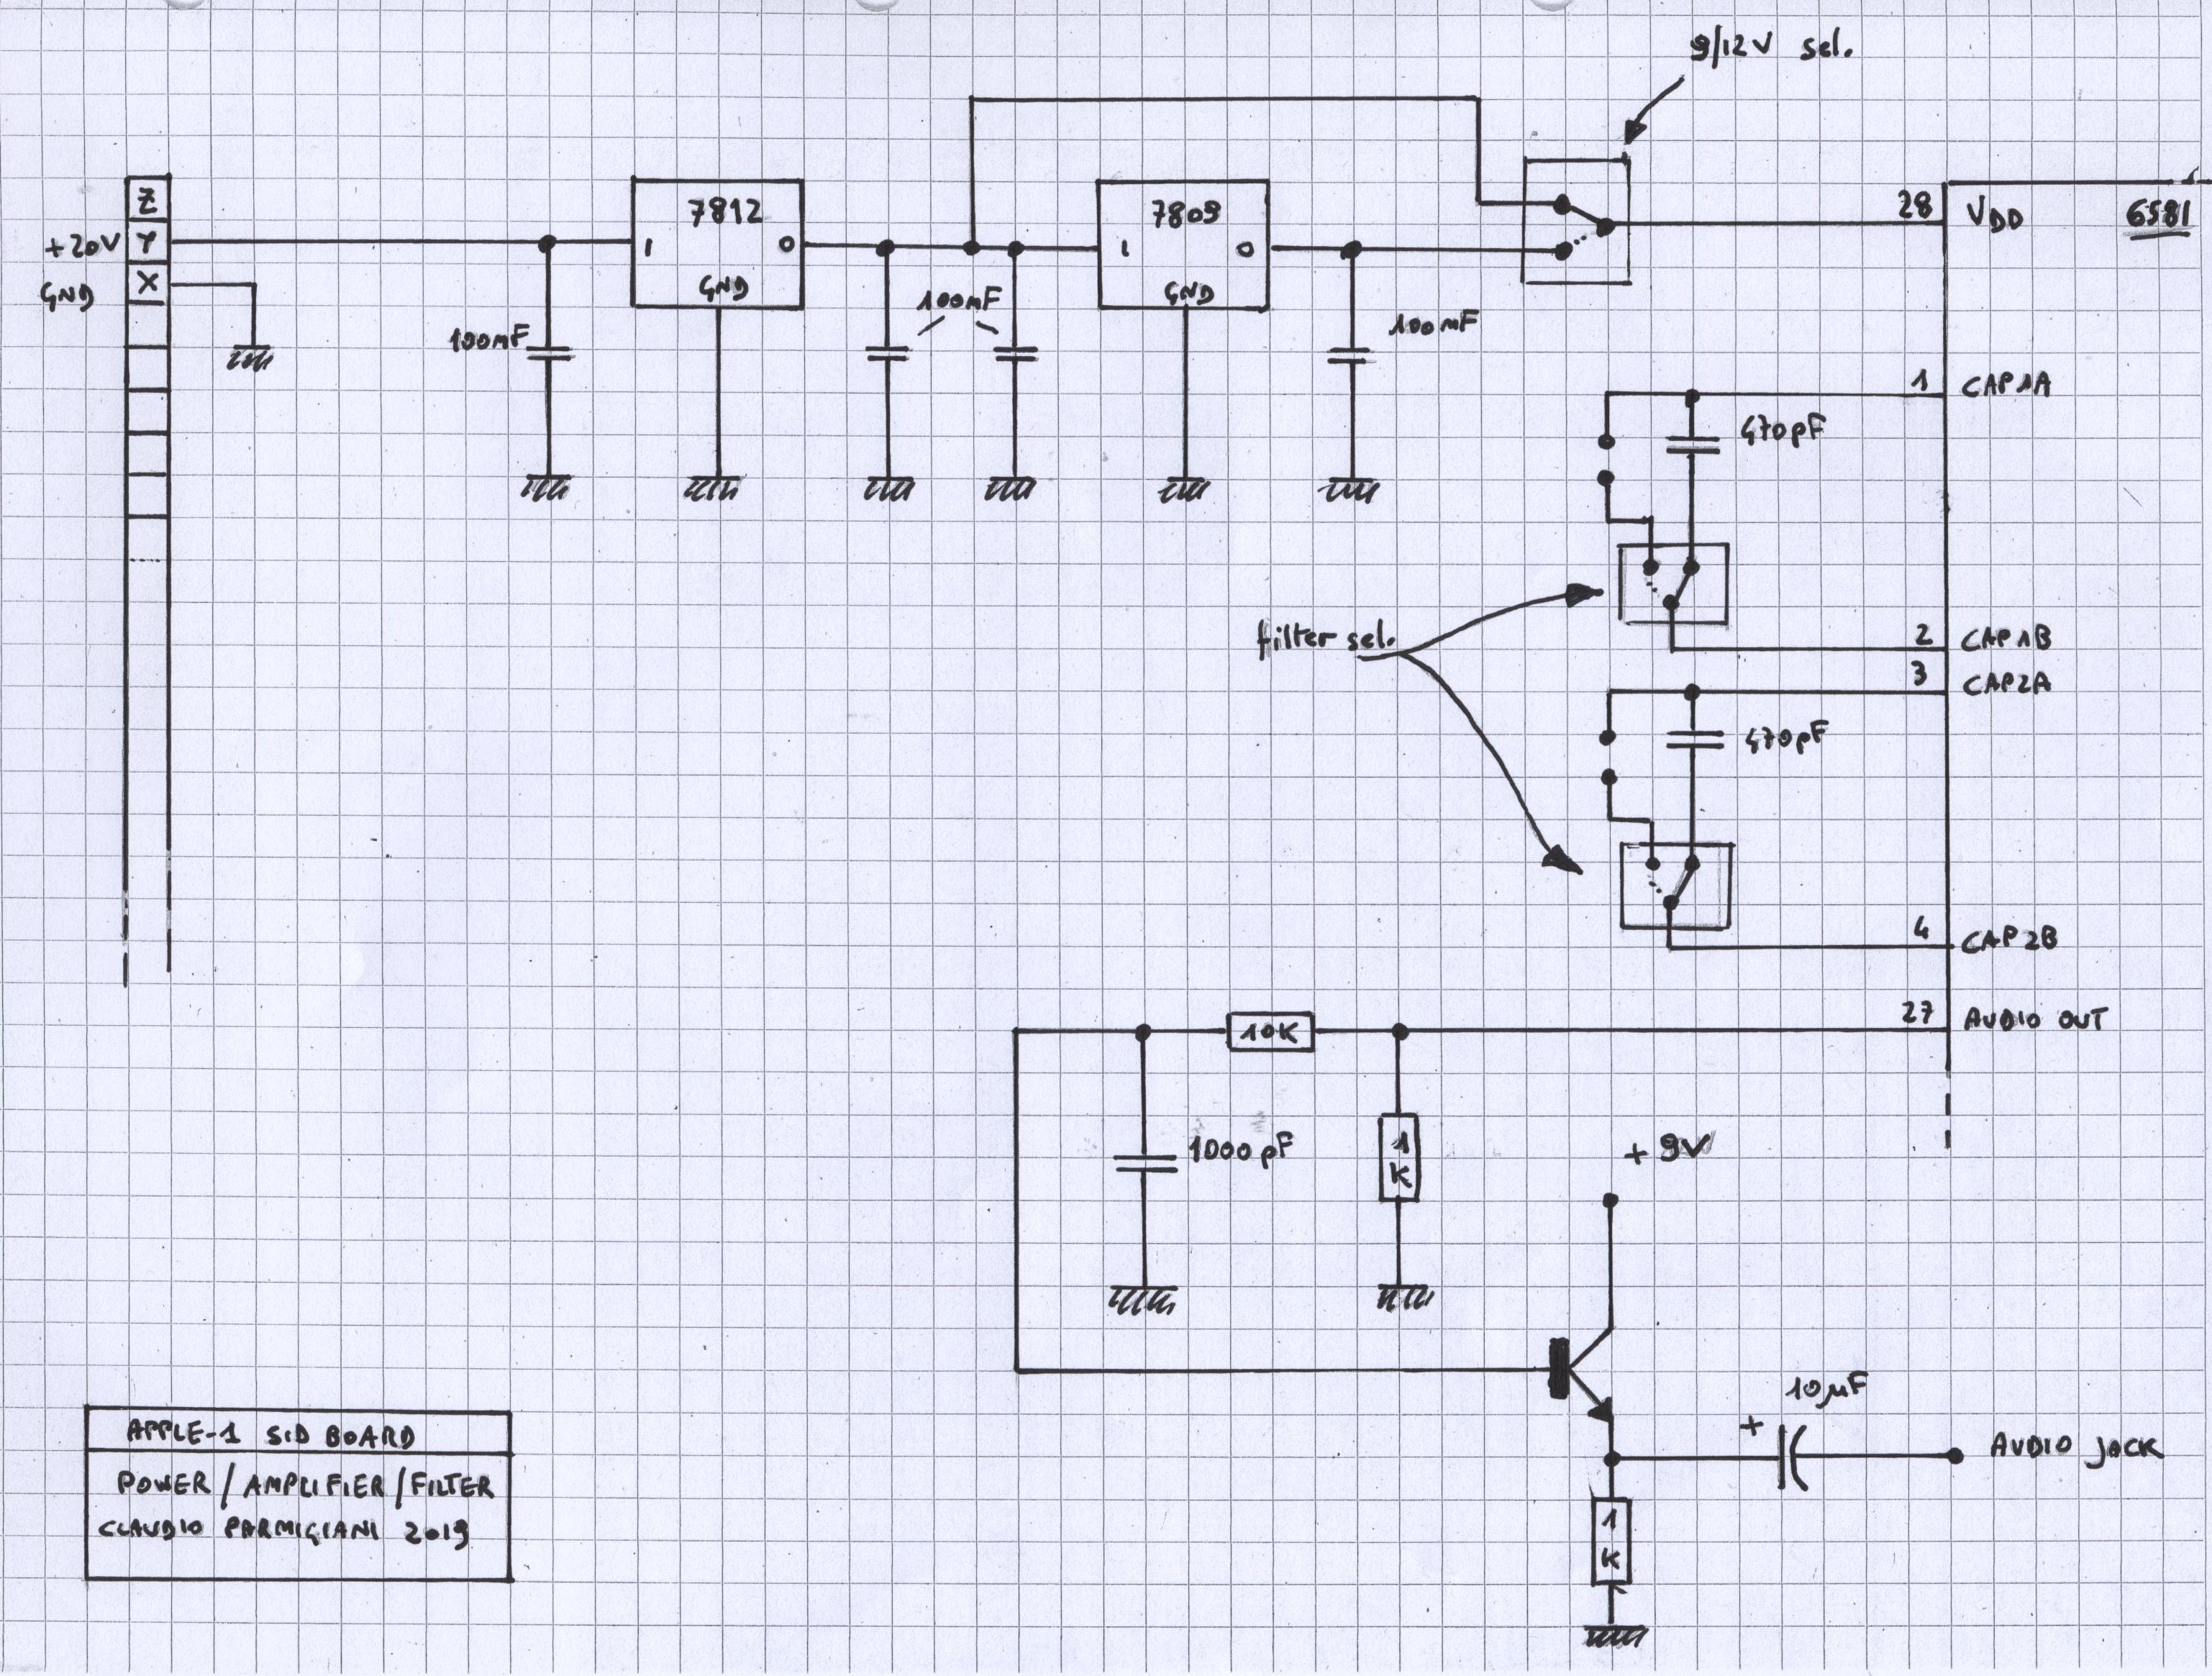 9/12V sel.
Z
+20V Y
GND X
7812
I O
GND
7809
I O
GND
100mF
100mF
100mF
28 VDD 6581
1 CAP1A
470pF
2 CAP1B
3 CAP2A
470pF
filter sel.
4 CAP2B
27 AUDIO OUT
10K
1000pF
1K
+9V
10µF
+
AUDIO JACK
1K
APPLE-1 SID BOARD
POWER/AMPLIFIER/FILTER
CLAUDIO PARMIGIANI 2019